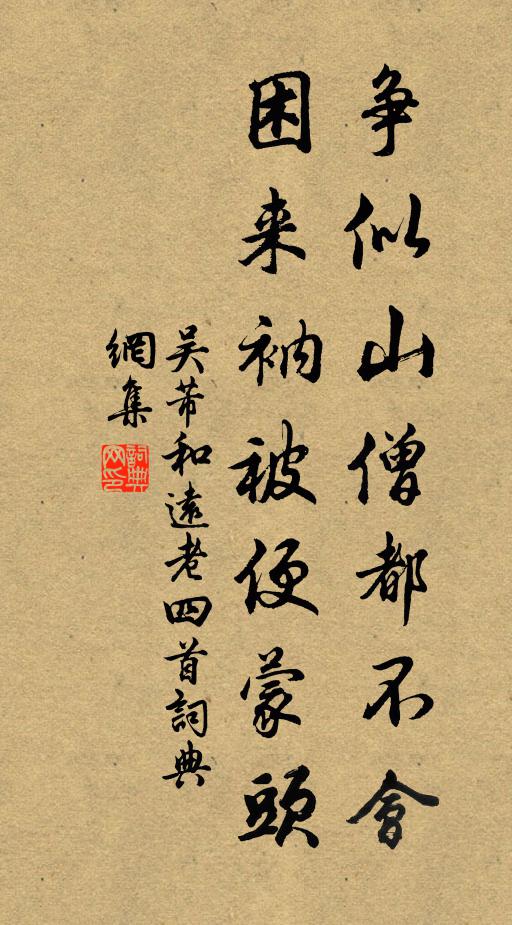 争似山僧都不會
困来衲被便蒙頭
吴芾和遠老四首詞典
網集
詞典网印